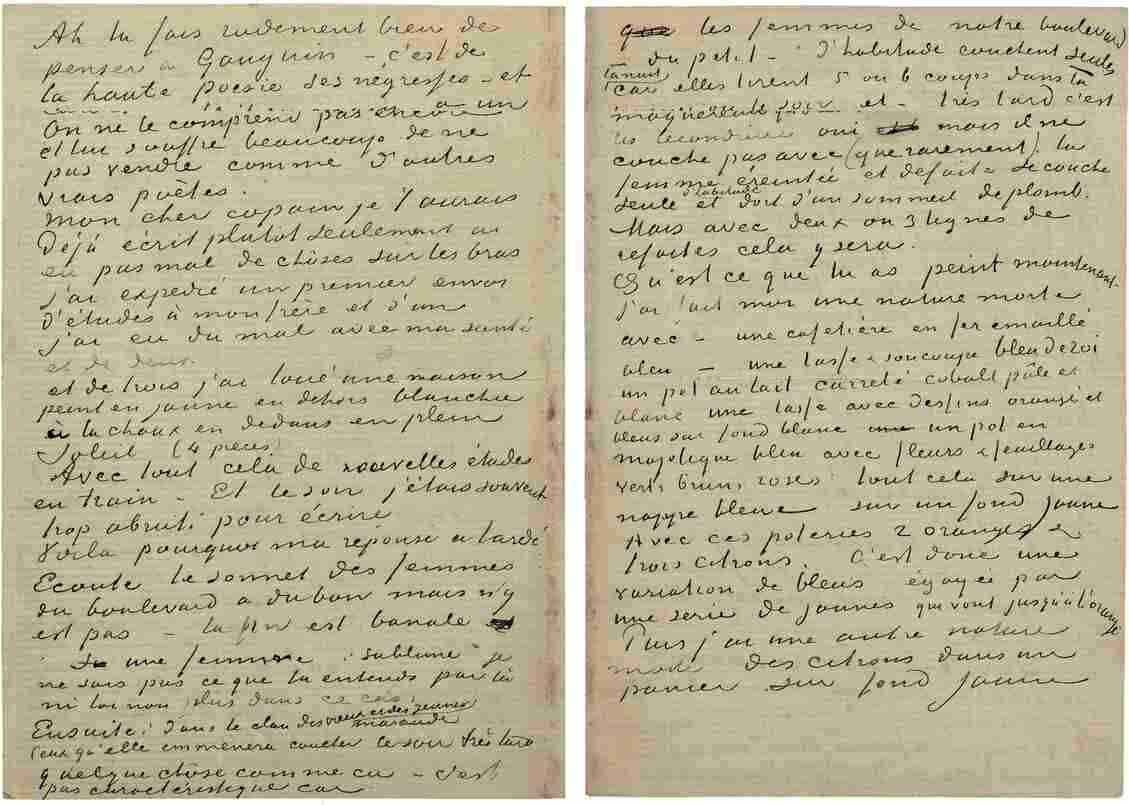 Ah tu fais rudement bien de
penser à Gauguin – c'est de
la haute poésie ses négresses – et
On ne le comprend pas encore
et lui souffre beaucoup de ne
pas vendre comme d'autres
vrais poètes.
Mon cher copain je t'aurais
déjà écrit plutôt seulement ai
eu pas mal de choses sur les bras
j'ai expédié un premier envoi
d'études à mon frère et d'un
j'ai eu du mal avec ma santé
et de deux
et de trois j'ai loué une maison
peint en jaune en dehors blanchie
à la chaux en dedans en plein
soleil (4 pièces)
Avec tout cela de nouvelles études
en train – Et le soir j'étais souvent
trop abruti pour écrire
Voila pourquoi ma réponse a tardé
Ecoute le sonnet des femmes
du boulevard a du bon mais n'y
est pas – la fin est banale
une femme "sublime" je
ne sais pas ce que tu entends par là
ni toi non plus dans ce cas
Ensuite: Dans le clan des vieux et des jeunes
maraude
Ceux qu'elle emmenera coucher le soir très tard
quelque chose comme ca – c'est
pas caractéristique car
que les femmes de notre boulevard
du petit – d'habitude couchent seules
la nuit
car elles tirent 5 ou 6 coups dans la
et – très tard c'est
oui mais il ne
couche pas avec (que rarement). la
femme éreintée et defaite se couche
d'habitude
seule et dort d'un sommeil de plomb.
Mais avec deux ou 3 lignes de
refaites cela y sera.
Qu'est ce que tu as peint maintenant.
j'ai fait moi une nature morte
avec – une cafetière en fer emaillé
bleu – une tasse & soucoupe bleu de roi
un pot au lait carrelé cobalt pâle et
blanc une tasse avec dessins orangé et
bleus sur fond blanc un pot en
majolique bleu avec fleurs & feuillages
verts bruns roses tout cela sur une
nappe bleue sur un fond jaune
Avec ces poteries 2 oranges &
trois citrons. C'est donc une
variation de bleus égayée par
une serie de jaunes qui vont jusqu'à l'orangé
Puis j'ai une autre nature
morte des citrons dans un
panier sur fond jaune